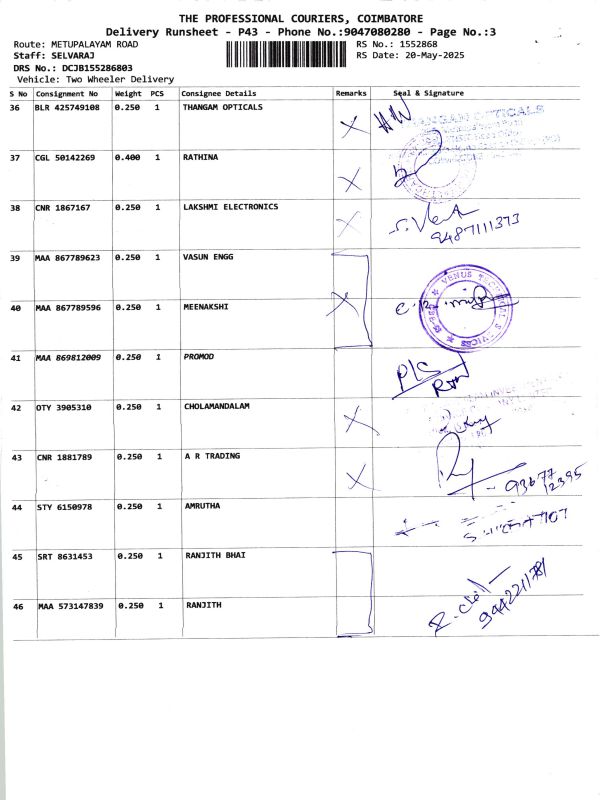 THE PROFESSIONAL COURIERS, COIMBATORE
Delivery Runsheet - P43 - Phone No.:9047080280 - Page No.:3
Route: METUPALAYAM ROAD RS No.: 1552868
Staff: SELVARAJ RS Date: 20-May-2025
DRS No.: DCJB155286803
Vehicle: Two Wheeler Delivery
S No Consignment No Weight PCS Consignee Details Remarks Seal & Signature
36 BLR 425749108 0.250 1 THANGAM OPTICALS
37 CGL 50142269 0.400 1 RATHINA
38 CNR 1867167 0.250 1 LAKSHMI ELECTRONICS
9487111373
39 MAA 867789623 0.250 1 VASUN ENGG
VENUS TECHNICAL SERVICES
40 MAA 867789596 0.250 1 MEENAKSHI
41 MAA 869812009 0.250 1 PROMOD
42 OTY 3905310 0.250 1 CHOLAMANDALAM
43 CNR 1881789 0.250 1 A R TRADING
44 STY 6150978 0.250 1 AMRUTHA
45 SRT 8631453 0.250 1 RANJITH BHAI
46 MAA 573147839 0.250 1 RANJITH